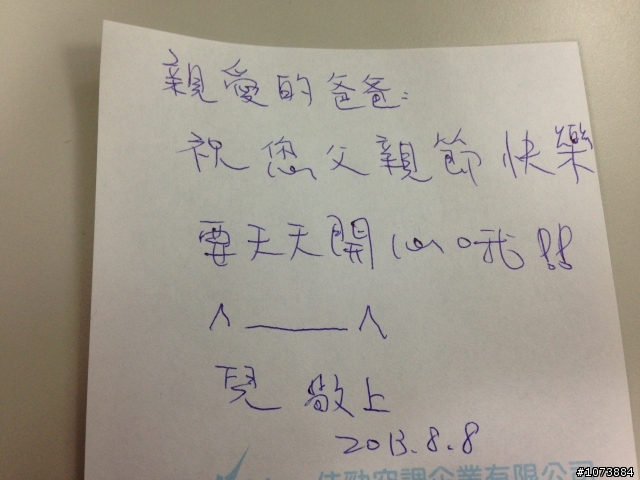 親愛的爸爸:
祝您父親節快樂
要天天開心哦!!
^____^
兒 敬上
2013.8.8
佳勁空調企業有限公司
#1073884